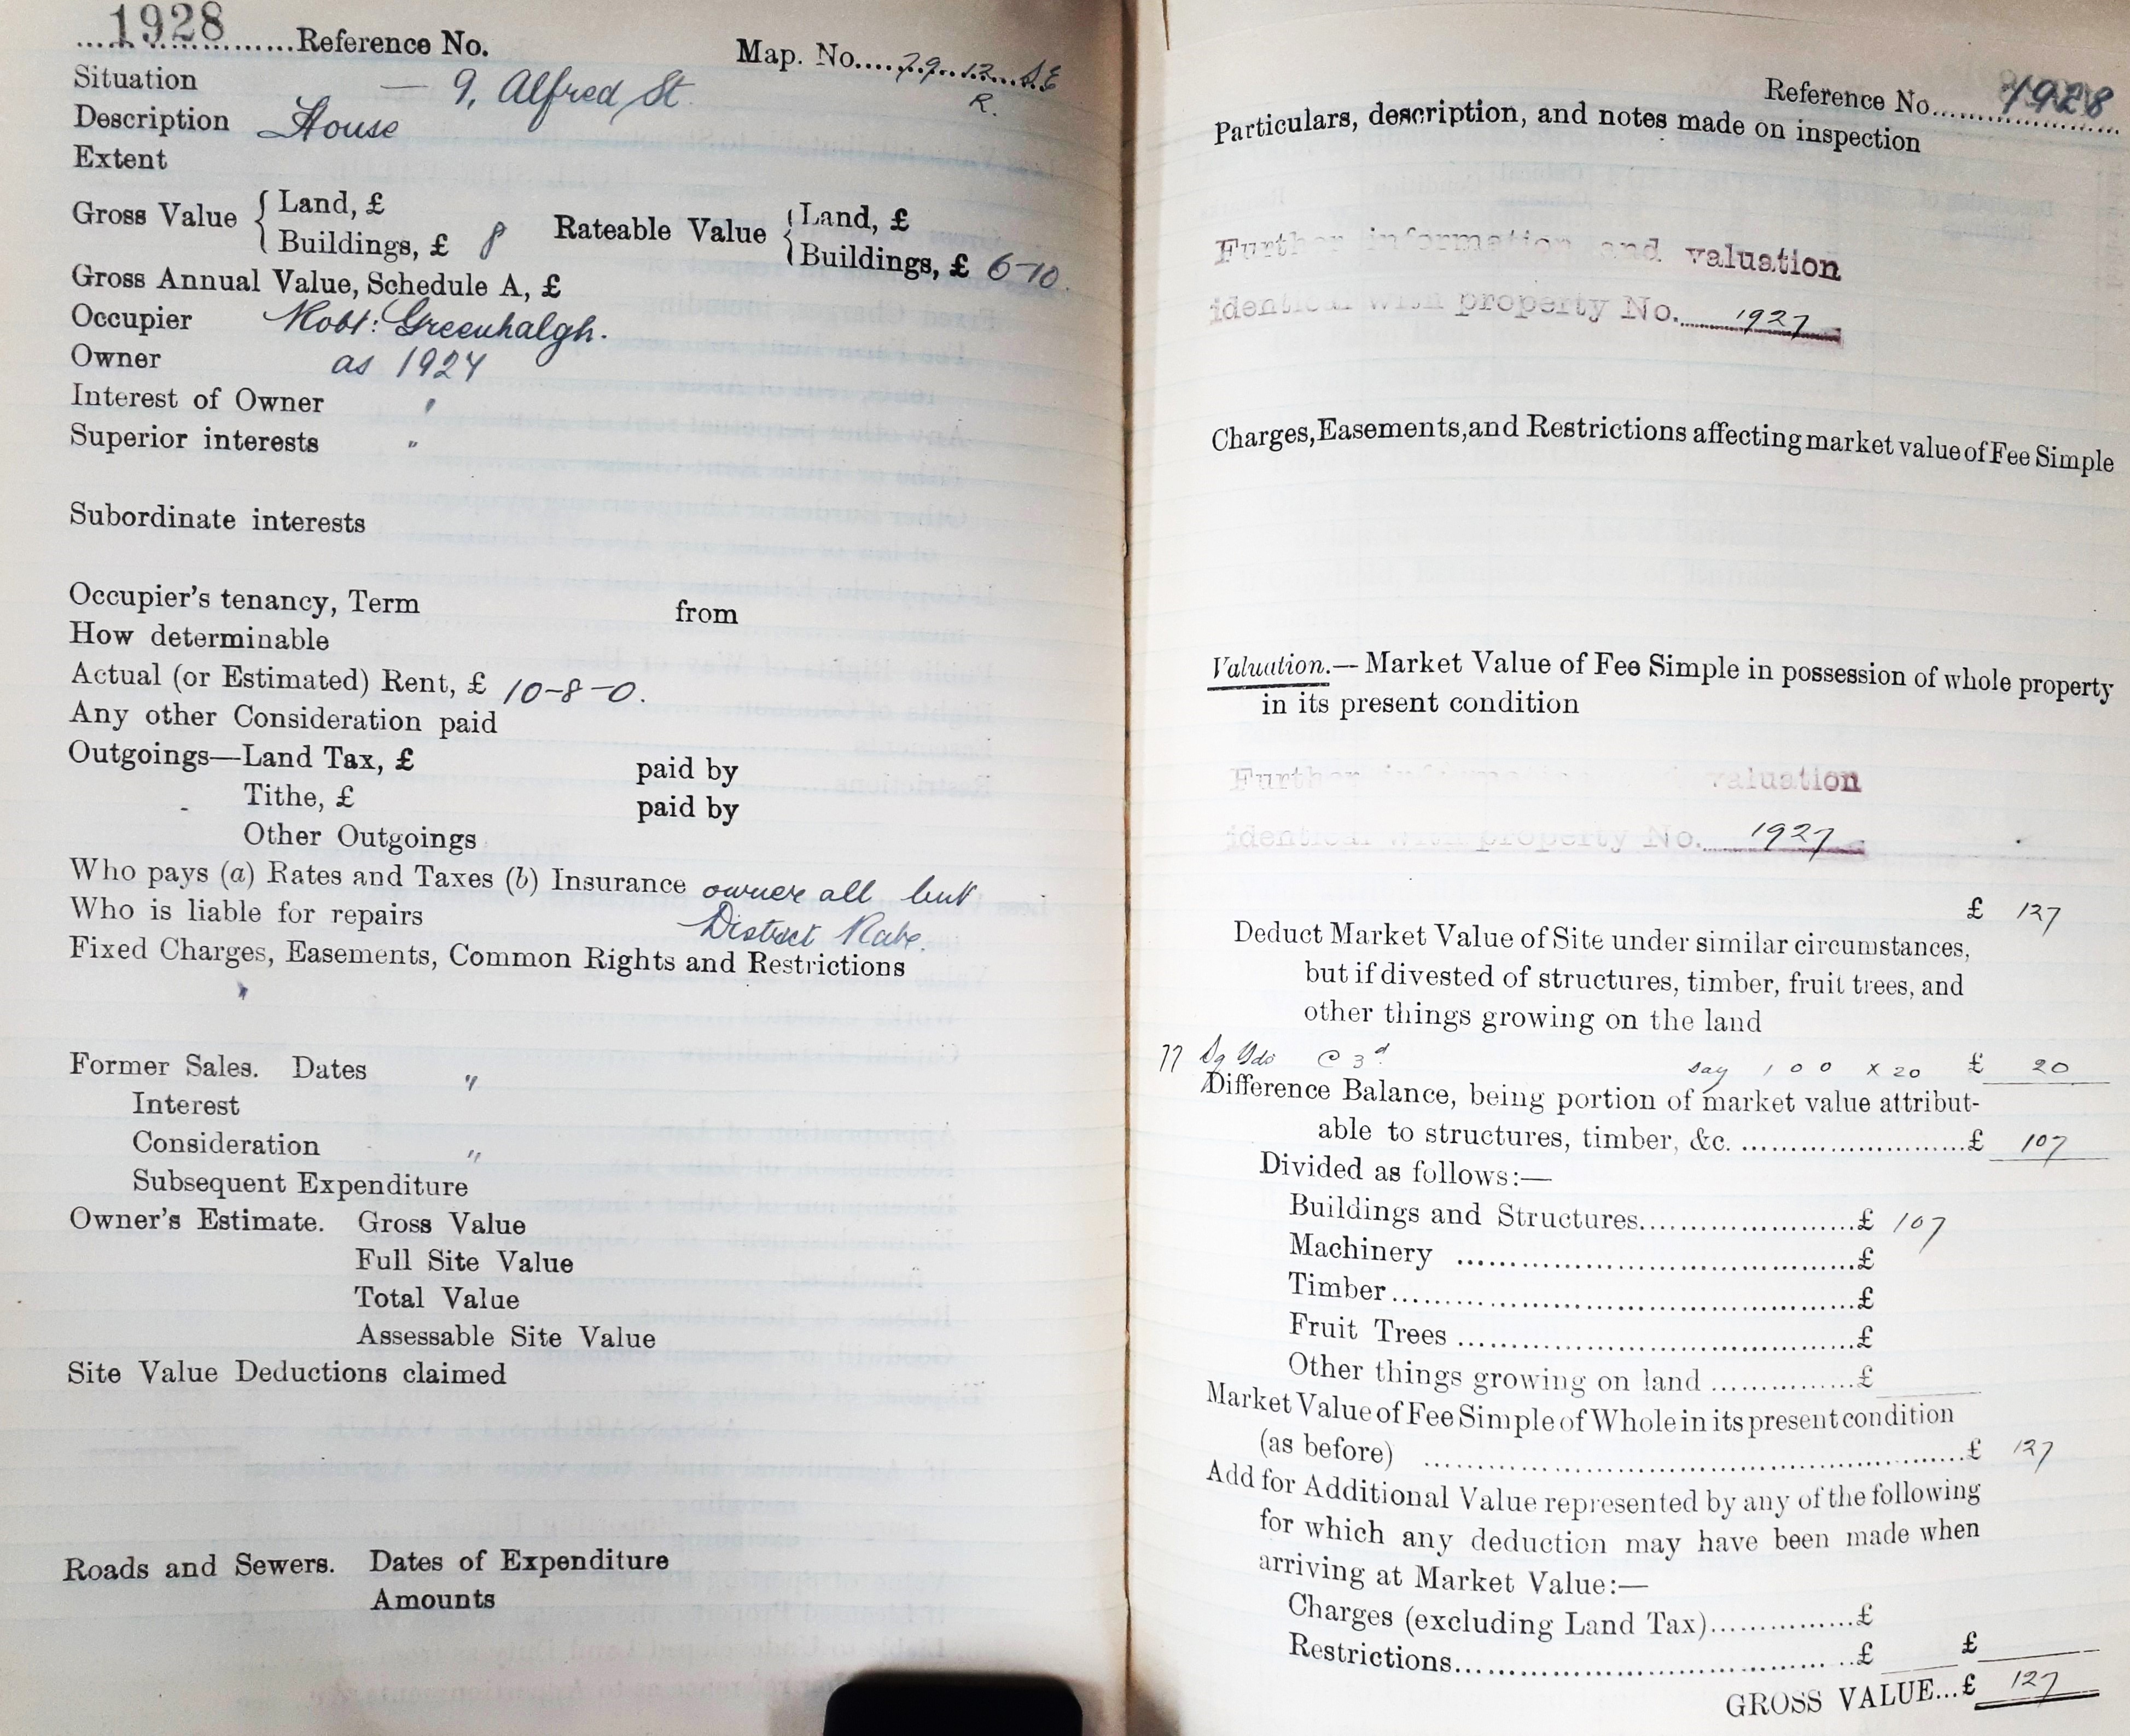 1928 Reference No. Map. No. 79.12 S.E
R.
Situation — 9, Alfred St.
Description House
Extent
Gross Value { Land, £
Buildings, £ 8
Rateable Value { Land, £
Buildings, £ 6-10.
Gross Annual Value, Schedule A, £
Occupier Robt: Greenhalgh.
Owner as 1924
Interest of Owner "
Superior interests "
Subordinate interests
Occupier's tenancy, Term from
How determinable
Actual (or Estimated) Rent, £ 10-8-0.
Any other Consideration paid
Outgoings—Land Tax, £ paid by
Tithe, £ paid by
Other Outgoings
Who pays (a) Rates and Taxes (b) Insurance owner all but
Who is liable for repairs District Rate.
Fixed Charges, Easements, Common Rights and Restrictions
Former Sales. Dates "
Interest
Consideration "
Subsequent Expenditure
Owner's Estimate. Gross Value
Full Site Value
Total Value
Assessable Site Value
Site Value Deductions claimed
Roads and Sewers. Dates of Expenditure
Amounts
Reference No. 1928
Particulars, description, and notes made on inspection
Further information and valuation
identical with property No. 1927
Charges, Easements, and Restrictions affecting market value of Fee Simple
Valuation.—Market Value of Fee Simple in possession of whole property
in its present condition
Further information valuation
identical with property No. 1927
£ 127
Deduct Market Value of Site under similar circumstances,
but if divested of structures, timber, fruit trees, and
other things growing on the land
77 Sq Yds @ 3d say 100 x 20 £ 20
Difference Balance, being portion of market value attribut-
able to structures, timber, &c. £ 107
Divided as follows:—
Buildings and Structures £ 107
Machinery £
Timber £
Fruit Trees £
Other things growing on land £
Market Value of Fee Simple of Whole in its present condition
(as before) £ 127
Add for Additional Value represented by any of the following
for which any deduction may have been made when
arriving at Market Value:—
Charges (excluding Land Tax) £
Restrictions £ £
GROSS VALUE...£ 127